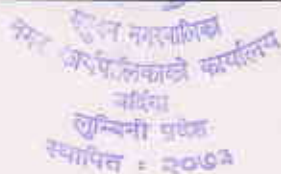 मधुवन नगरपालिका
नगर कार्यपालिकाको कार्यालय
बर्दिया
लुम्बिनी प्रदेश
स्थापित : २०७३